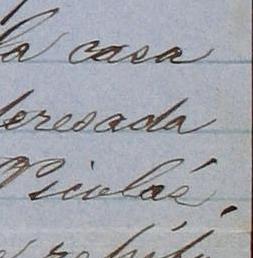 la casa
teresada
Nicolaé.